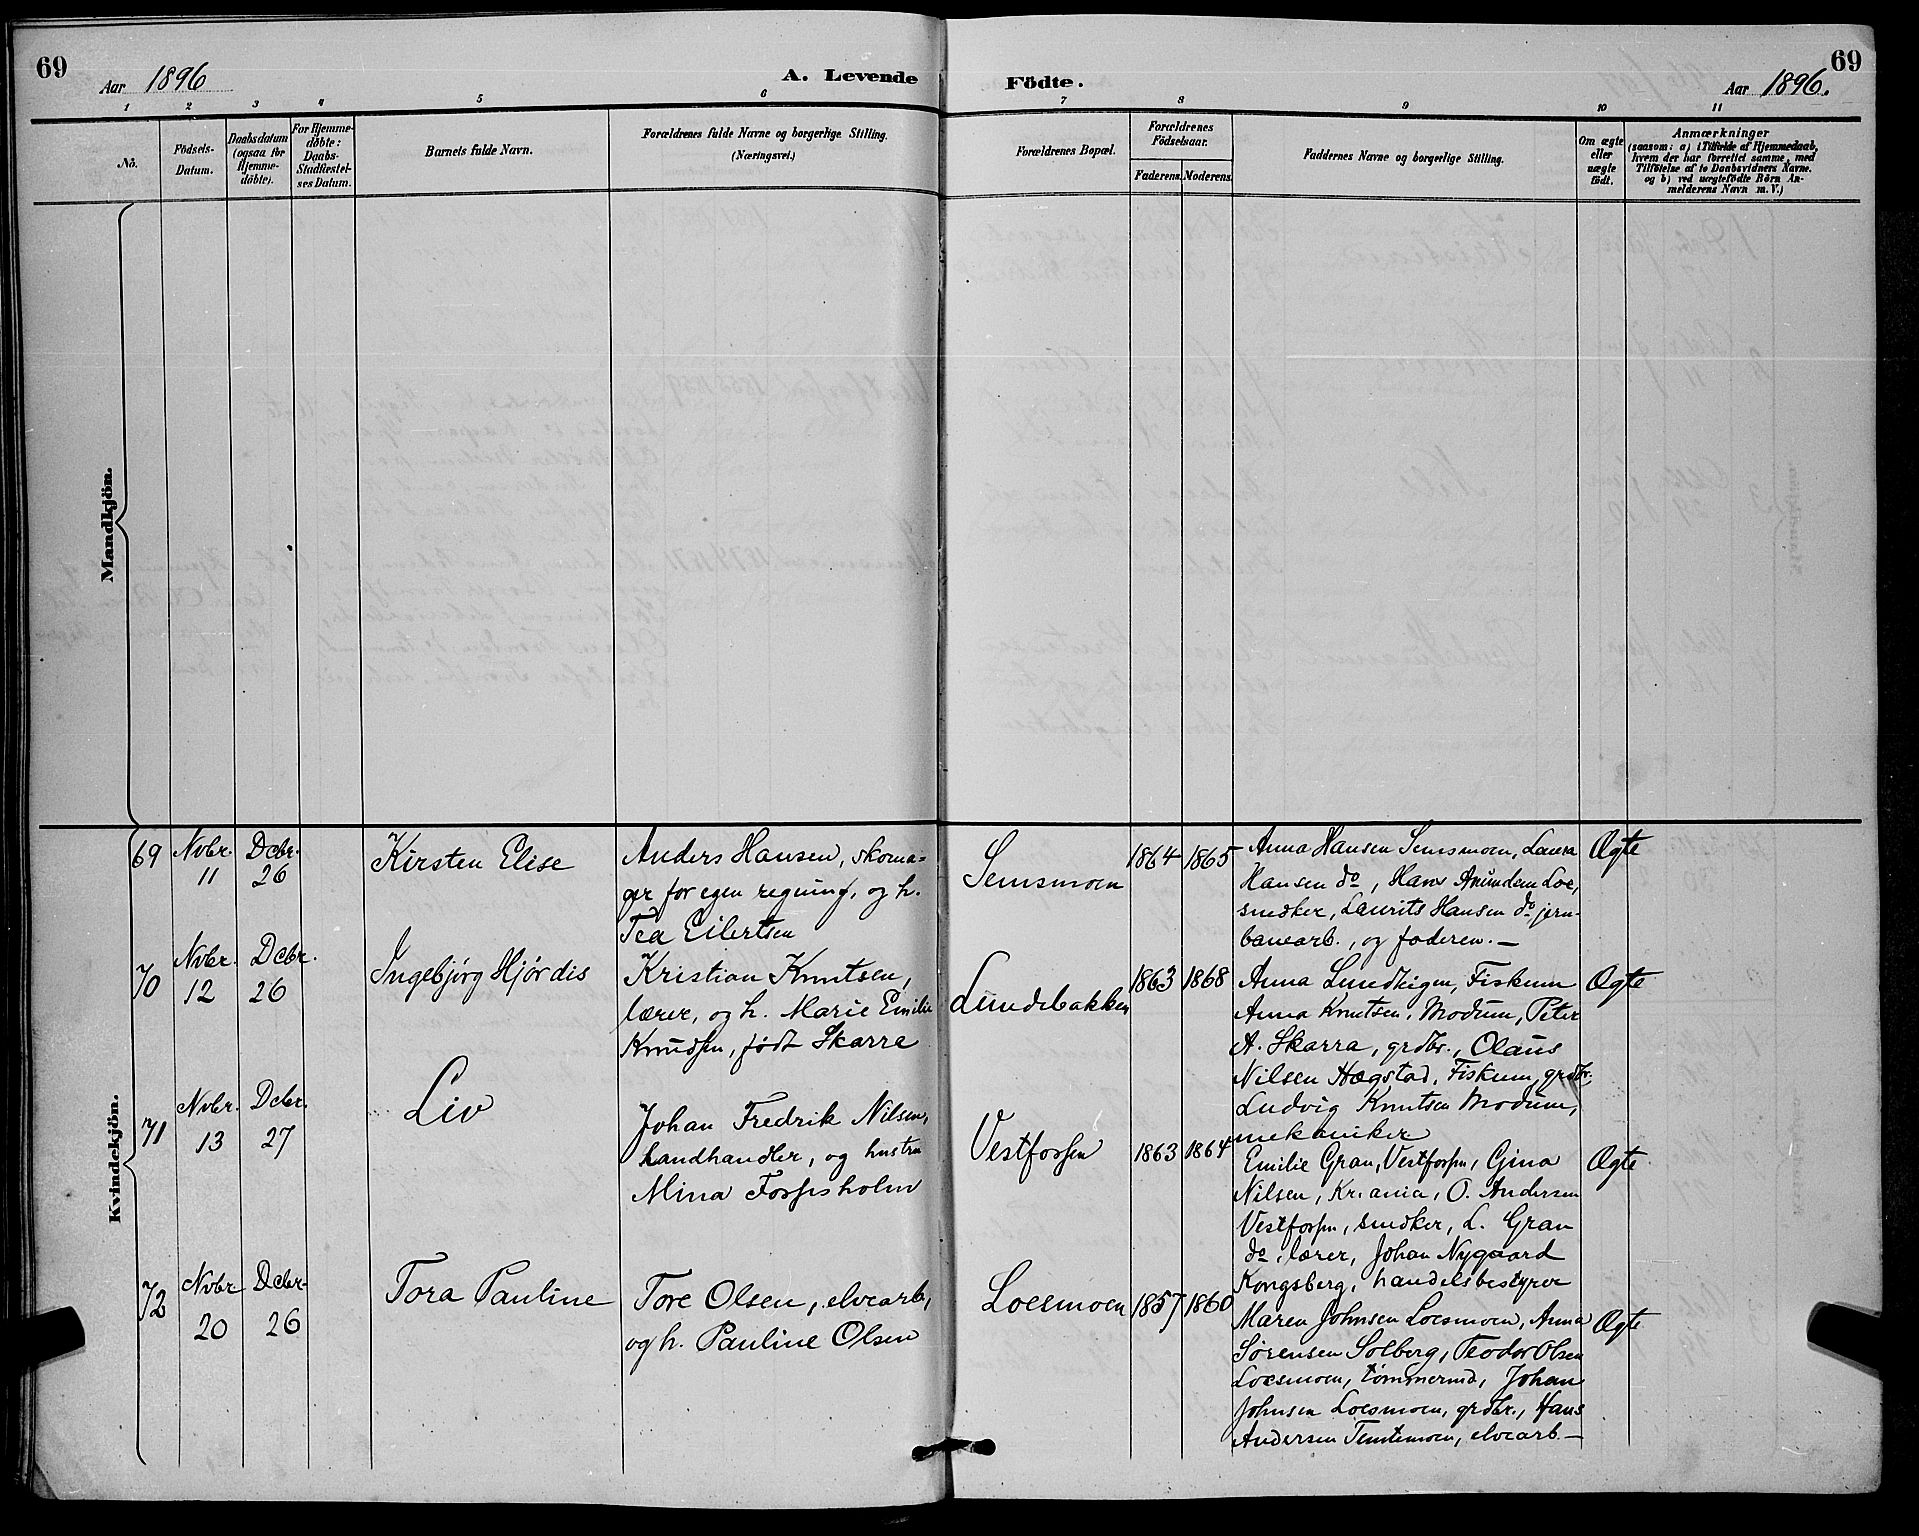 69
Aar 1896
A. Levende
Födte.
Aar 1896.
69
1 2 3 4 5 6 7 8 9 10 11
Nò.
Födsels-
Datum.
Daabsdatum
(ogsaa for
Hjemme-
döbte).
For Hjemme-
döbte:
Daabs-
Stadfæstel-
ses Datum.
Barnets fulde Navn.
Forældrenes fulde Navne og borgerlige Stilling.
(Næringsvei.)
Forældrenes Bopæl.
Forældrenes
Födselsaar.
Faderens. Moderens.
Faddernes Navne og borgerlige Stilling.
Om ægte
eller
uægte
födt.
Anmærkninger
(saasom: a) i Tilfælde af Hjemmedaab,
hvem der har forrettet samme, med
Tilföielse af to Daabsvidners Navne.
og b) ved uægtefödte Börn An-
melderens Navn m. V.)
Mandkjön.
Kvindekjön.
69
Nvbr.
11
Dcbr.
26
Kirsten Elise
Anders Hansen, skoma-
ger for egen regning, og h.
Tea Eilertsen
Semsmoen
1864
1865
Anna Hansen Semsmoen, Laura
Hansen do, Hans Amundsen Loe,
snedker, Laurits Hansen do jern-
banearb., og faderen. —
Ægte
70
Nvbr.
12
Dcbr.
26
Ingebjørg Hjørdis
Kristian Knutsen,
lærer, og h. Marie Emilie
Knudsen, født Skarra
Lundebakken
1863
1868
Anna Lundteigen, Fiskum
Anna Knutsen, Modum, Peter
A. Skarra, grdbr., Olaus
Nilsen Hægstad, Fiskum, grdbr.
Ludvig Knutsen Modum,
mekaniker
Ægte
71
Nvbr.
13
Dcbr.
27
Liv
Johan Fredrik Nilsen,
landhandler, og hustru
Mina Forssholm
Vestfossen
1863
1864
Emilie Gran, Vestfossen, Gina
Nilsen, Kr.ania, O. Andersen
Vestfossn, snedker, L. Gran
do, lærer, Johan Nygaard
Kongsberg, handelsbestyrer
Ægte
72
Nvbr
20
Dcbr.
26
Tora Pauline
Tore Olsen, elvearb,
og h. Pauline Olsen
Loesmoen
1857
1860
Maren Johnsen Loesmoen, Anna
Sørensen Solberg, Teodor Olsen
Loesmoen, tømmermd, Johan
Johnsen Loesmoen, grdbr., Hans
Andersen Temtemoen, elvearb. —
Ægte